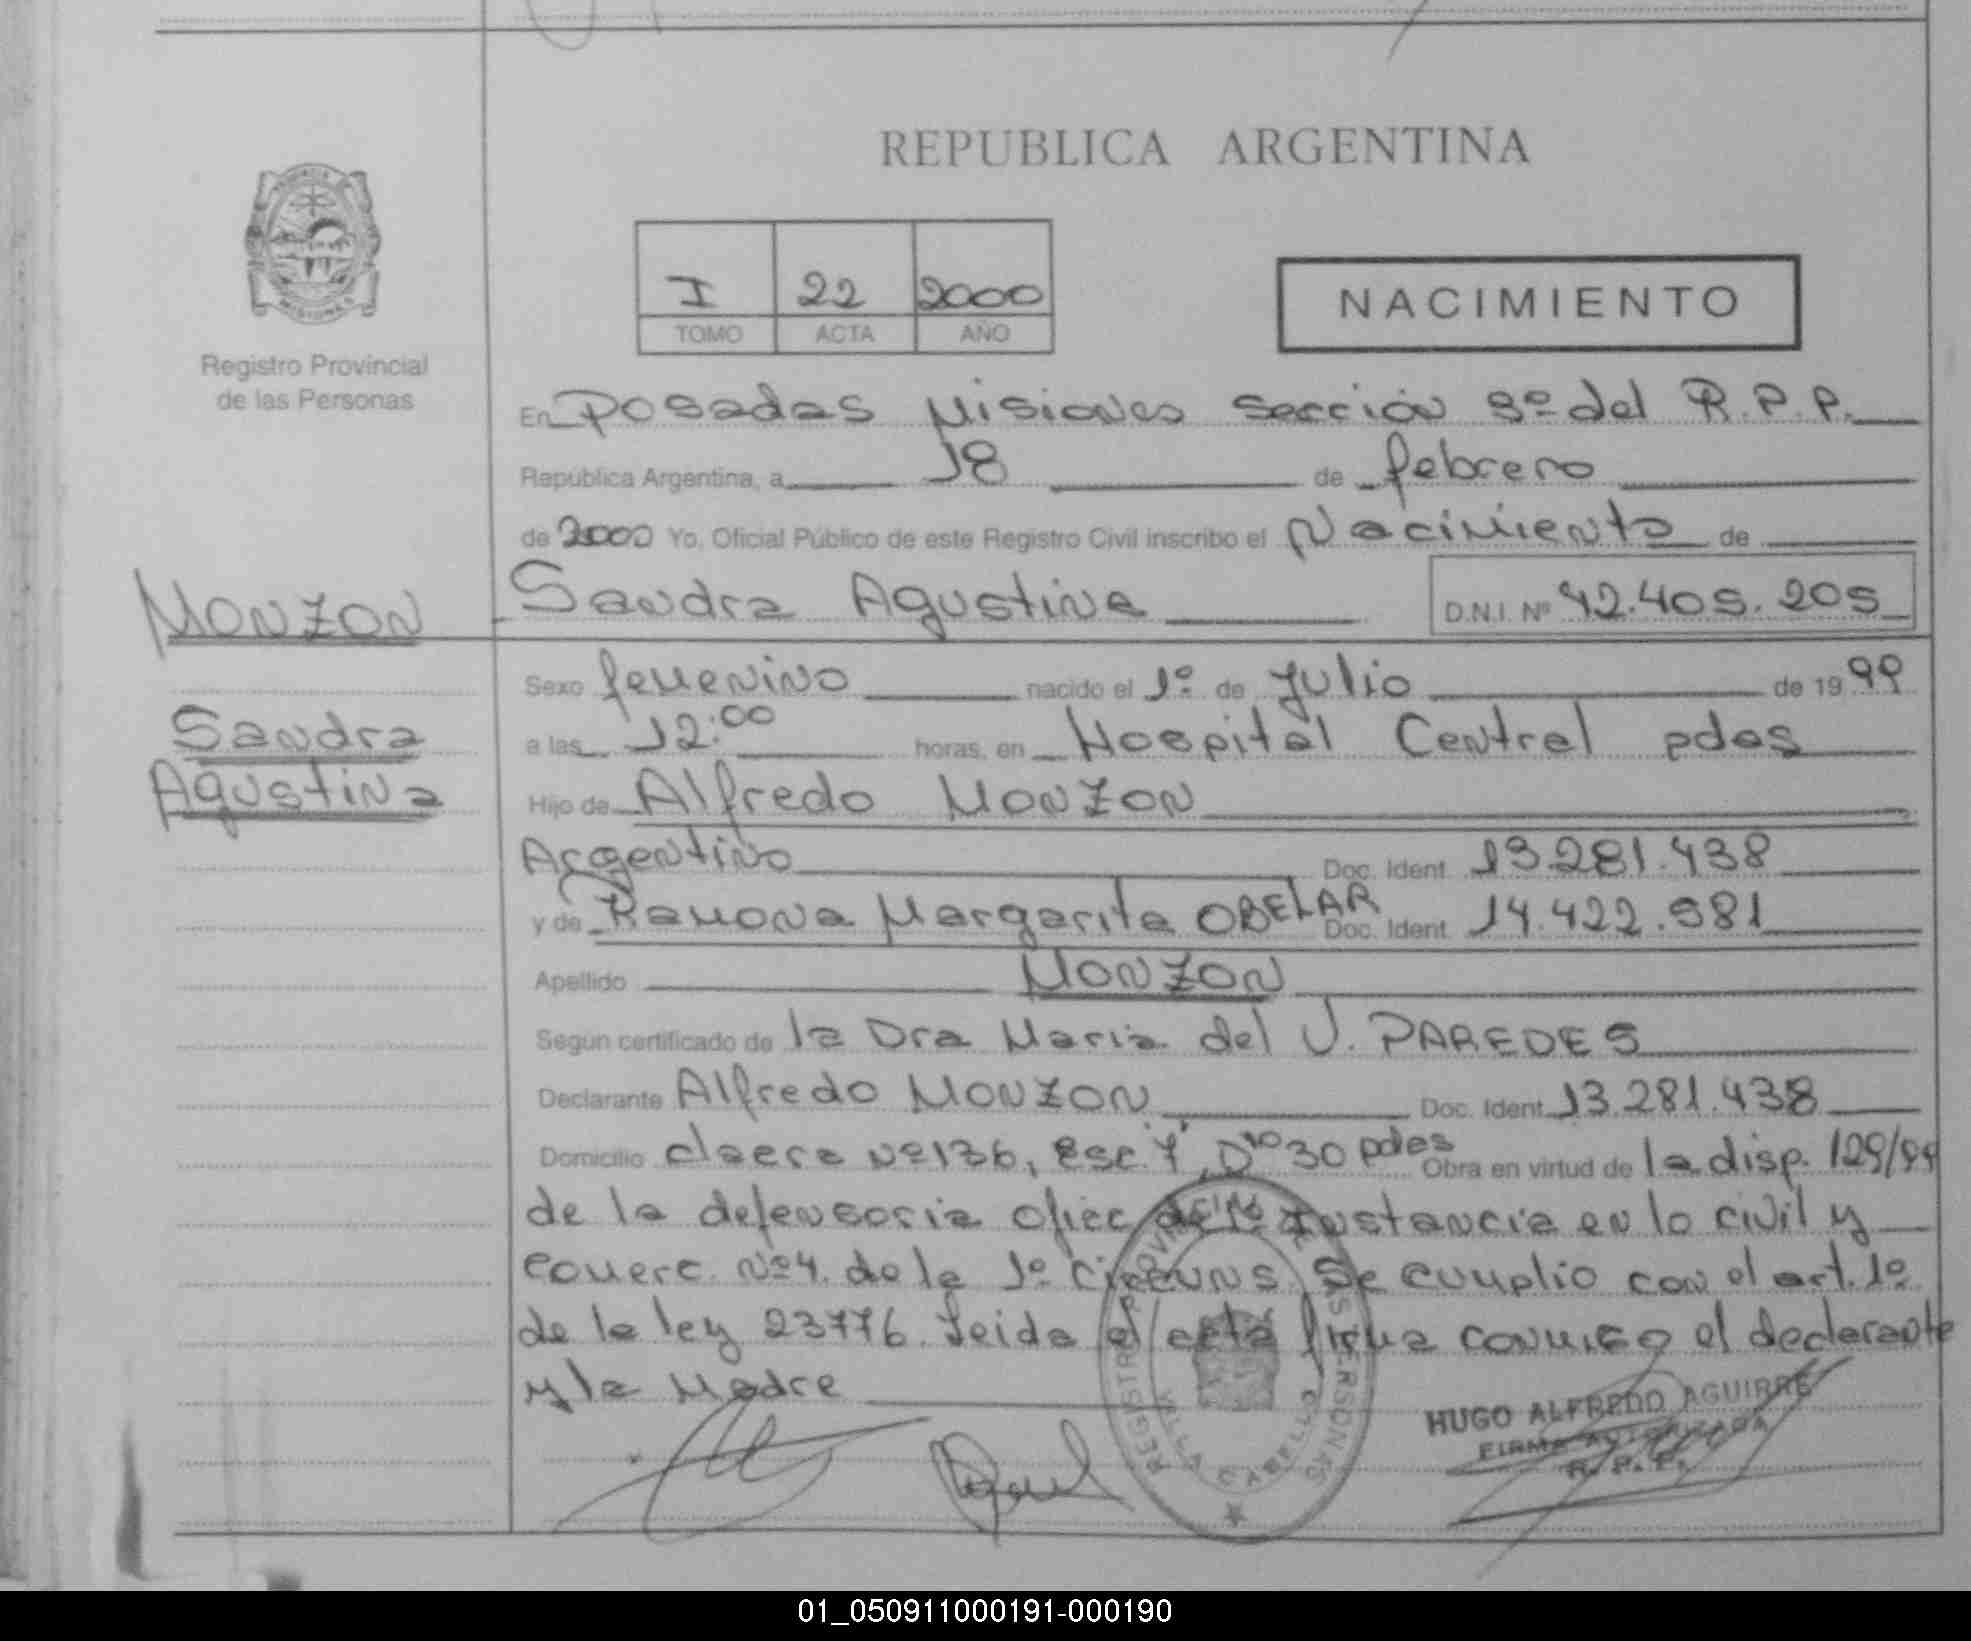 REPUBLICA ARGENTINA
I 22 2000
TOMO ACTA AÑO
NACIMIENTO
Registro Provincial
de las Personas
En Posadas Misiones sección 3º del R.P.P.
República Argentina, a 18 de febrero
de 2000 Yo, Oficial Público de este Registro Civil inscribo el Nacimiento de
Sandra Agustina D.N.I. Nº 42.405.205
MONZON
Sandra
Agustina
Sexo femenino nacido el 1º de Julio de 1999
a las 12:00 horas, en Hospital Central pdas
Hijo de Alfredo MONZON
Argentino Doc. Ident. 13.281.438
y de Ramona Margarita OBELAR Doc. Ident. 14.422.981
Apellido MONZON
Según certificado de la Dra Maria del V. PAREDES
Declarante Alfredo MONZON Doc. Ident. 13.281.438
Domicilio Nº 136, esc. 7, Dto 30 pdas Obra en virtud de la disp. 129/99
de la defensoria ofic de 1º Instancia en lo civil y
comerc. Nº 4. de la 1º Circuns. Se cumplio con el art. 1º
de la ley 23776. Leida el acta firma conmigo el declarante
y la Madre
REGISTRO PROVINCIAL DE LAS PERSONAS
VILLA CABELLO
HUGO ALFREDO AGUIRRE
FIRMA AUTORIZADA
R. P. P.
01_050911000191-000190